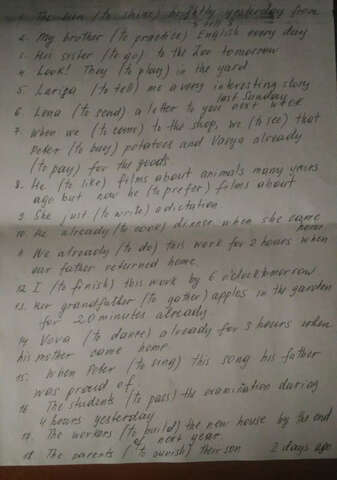 1. The sun (to shine) brightly yesterday from
2. My brother (to practice) English every day
3. His sister (to go) to the Zoo tomorrow
4. Look! They (to play) in the yard
5. Larisa (to tell) me a very interesting story
last Sunday
6. Lena (to send) a letter to you next week
7. When we (to come) to the shop, we (to see) that
Peter (to buy) potatoes and Vasya already
(to pay) for the goods.
8. He (to like) films about animals many years
ago but now he (to prefer) films about
9. She just (to write) a dictation
10. He already (to cook) dinner when she came
home
11. We already (to do) this work for 2 hours when
our father returned home
12. I (to finish) this work by 6 o'clock tomorrow
13. Her grandfather (to gather) apples in the garden
for 20 minutes already
14. Vova (to dance) already for 3 hours when
his mother came home.
15. When Peter (to sing) this song his father
was proud of
16. The students (to pass) the examination during
4 hours yesterday
17. The workers (to build) the new house by the end
of next year
18. The parents ( to ) their son 2 days ago